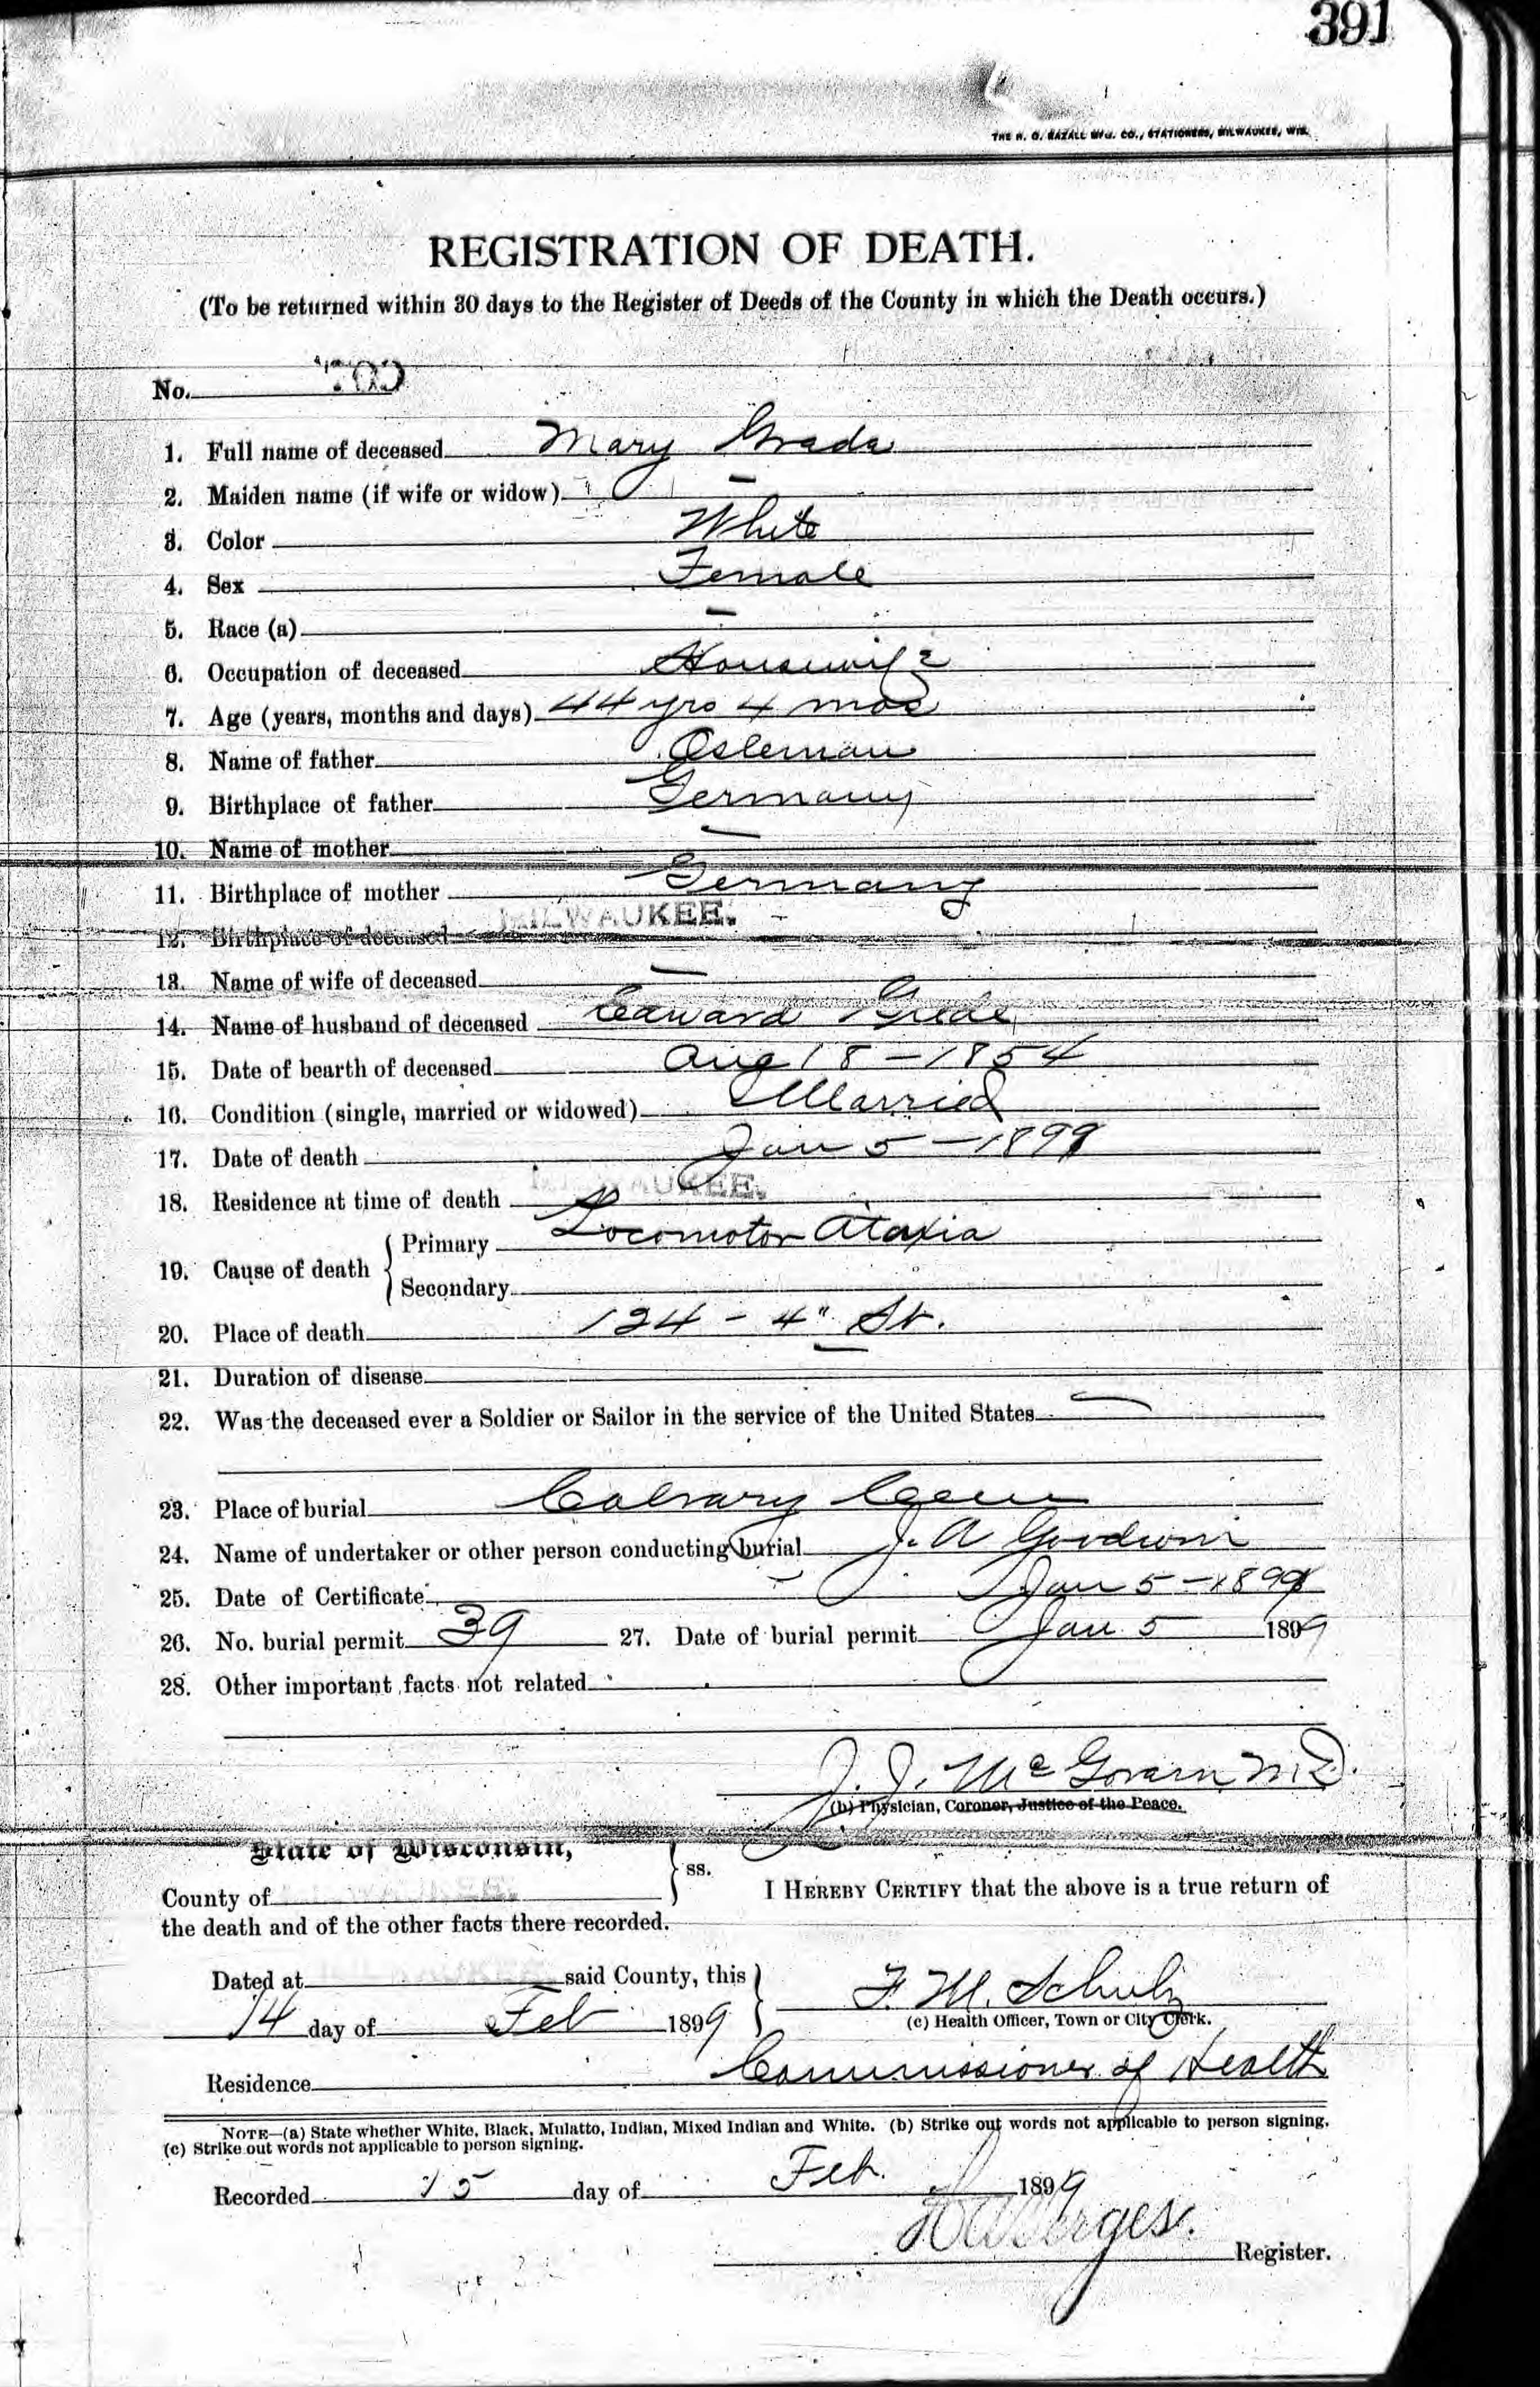 391
THE H. O. RAZALL MFG. CO., STATIONERS, MILWAUKEE, WIS.
REGISTRATION OF DEATH.
(To be returned within 30 days to the Register of Deeds of the County in which the Death occurs.)
No.
1. Full name of deceased Mary Grade
2. Maiden name (if wife or widow) —
3. Color White
4. Sex Female
5. Race (a) —
6. Occupation of deceased Housewife
7. Age (years, months and days) 44 yrs 4 mos
8. Name of father Osleman
9. Birthplace of father Germany
10. Name of mother —
11. Birthplace of mother Germany
12. Birthplace of deceased MILWAUKEE.
13. Name of wife of deceased —
14. Name of husband of deceased Edward Grede
15. Date of bearth of deceased Aug 18 - 1854
16. Condition (single, married or widowed) Married
17. Date of death Jan 5 - 1899
18. Residence at time of death MILWAUKEE.
19. Cause of death { Primary Locomotor Ataxia
Secondary
20. Place of death 124 - 4" St.
21. Duration of disease —
22. Was the deceased ever a Soldier or Sailor in the service of the United States —
23. Place of burial Calvary Cem
24. Name of undertaker or other person conducting burial J. A Goodwin
25. Date of Certificate Jan 5 - 1899
26. No. burial permit 39 27. Date of burial permit Jan 5 1899
28. Other important facts not related
J. J. McGovern M.D.
(b) Physician, Coroner, Justice of the Peace.
State of Wisconsin,
County of MILWAUKEE. } ss. I HEREBY CERTIFY that the above is a true return of
the death and of the other facts there recorded.
Dated at MILWAUKEE said County, this }
14 day of Feb 1899
F. M. Schulz
(c) Health Officer, Town or City Clerk.
Residence Commissioner of Health
NOTE—(a) State whether White, Black, Mulatto, Indian, Mixed Indian and White. (b) Strike out words not applicable to person signing.
(c) Strike out words not applicable to person signing.
Recorded 15 day of Feb. 1899
Register.